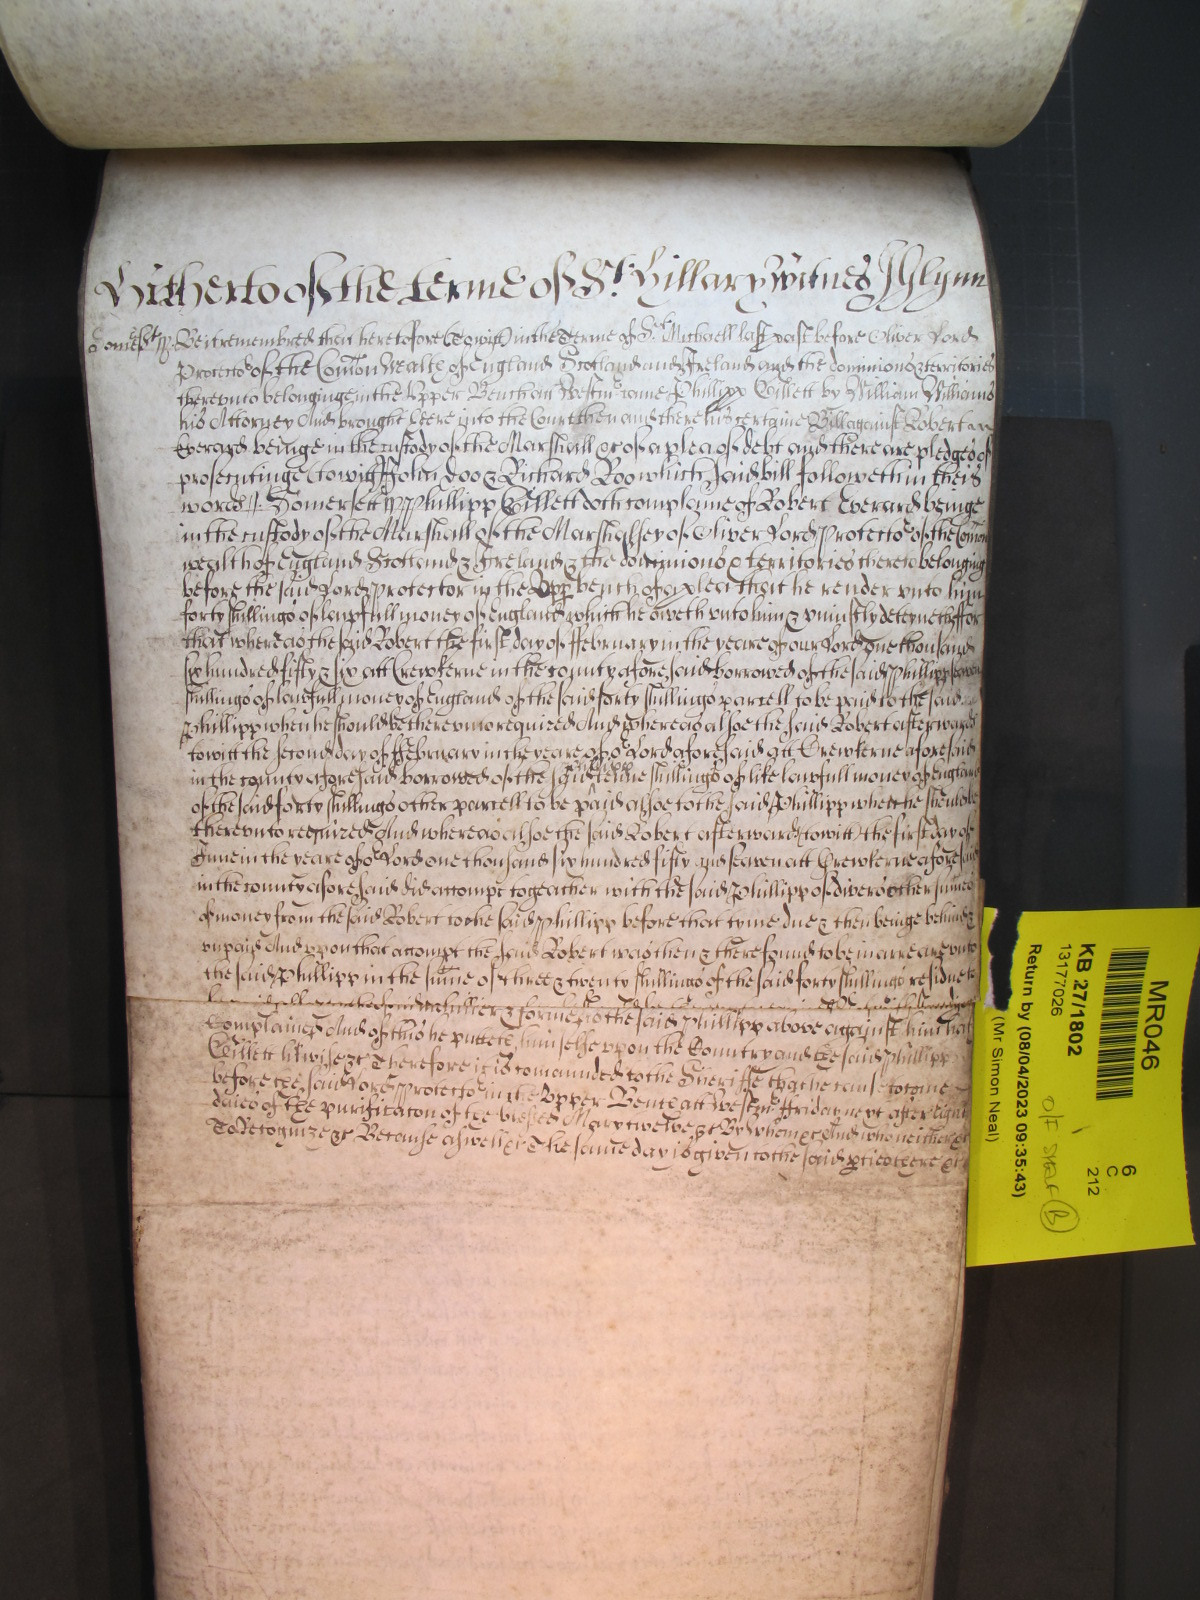 Hitherto of the terme of St. Hillary Witnes J Glynn
Somst ss. Be it remembred that heretofore (to witt) in the Terme of St. Michaell last past before Oliver Lord
Protector of the Comon Wealth of England Scotland and Ireland and the dominions & territories
thereunto belonginge in the Upper Bench att Westm came Phillipp Gillett by William Williams
his Attorney And brought heere into the Court then and there his certaine Bill against Robert
Everard beinge in the custody of the Marshall &c of a plea of debt and there are pledges of
prosecutinge (to witt) John Doo & Richard Roo which said bill followeth in theis
words ss. Somersett ss Phillipp Gillett doth complaine of Robert Everard beinge
in the custody of the Marshall of the Marshalsey of Oliver Lord Protector of the Comon
wealth of England Scotland & Ireland & the dominions & territories thereto belonging
before the said Lord Protector in the Upp bench of a plea that he render unto him
forty shillings of lawfull money of England which he oweth unto him & uniustly deteyneth ffor
that whereas the said Robert the first day of ffebruary in the yeare of our Lord one thousand
six hundred fifty & six att Crewkerne in the county aforesaid borrowed of the said Phillipp seaven
shillings of lawfull money of England of the said forty shillings parcell to be paid to the said
Phillipp when he should be thereunto required And whereas alsoe the said Robert afterwards
to witt the second day of ffebruary in the yeare of or Lord aforesaid att Crewkerne aforesaid
in the county aforesaid borrowed of the said Phillipp tenne shillings of like lawfull money of England
of the said forty shillings other parcell to be paid alsoe to the said Phillipp when he should be
thereunto required And whereas alsoe the said Robert afterward (to witt) the first day of
June in the yeare of or Lord one thousand six hundred fifty and seaven att Crewkerne aforesaid
in the county aforesaid did accompt togeather with the said Phillipp of divers other summes
of money from the said Robert to the said Phillipp before that tyme due & then beinge behind &
unpaid And uppon that accompt the said Robert was then & there found to be in arreare unto
the said Phillipp in the summe of three & twenty shillings of the said forty shillings residue to
Complained And of this he putteth himselfe uppon the Country and the said Phillipp
Gillett likwise &c Therefore it is comanded to the Sheriffe that he cause to come
before the said Lord Protector in the Upper Bench att Westm ffriday next after eight
daies of the purificacon of the blessed Mary twelve &c By whom &c And who neither &c
To Recognize &c Because aswell &c The same day is given to the said pties there &c
MR046
KB 27/1802
13177026
Return by (08/04/2023 09:35:43)
(Mr Simon Neal)
6
C
212
O/F SHELF B